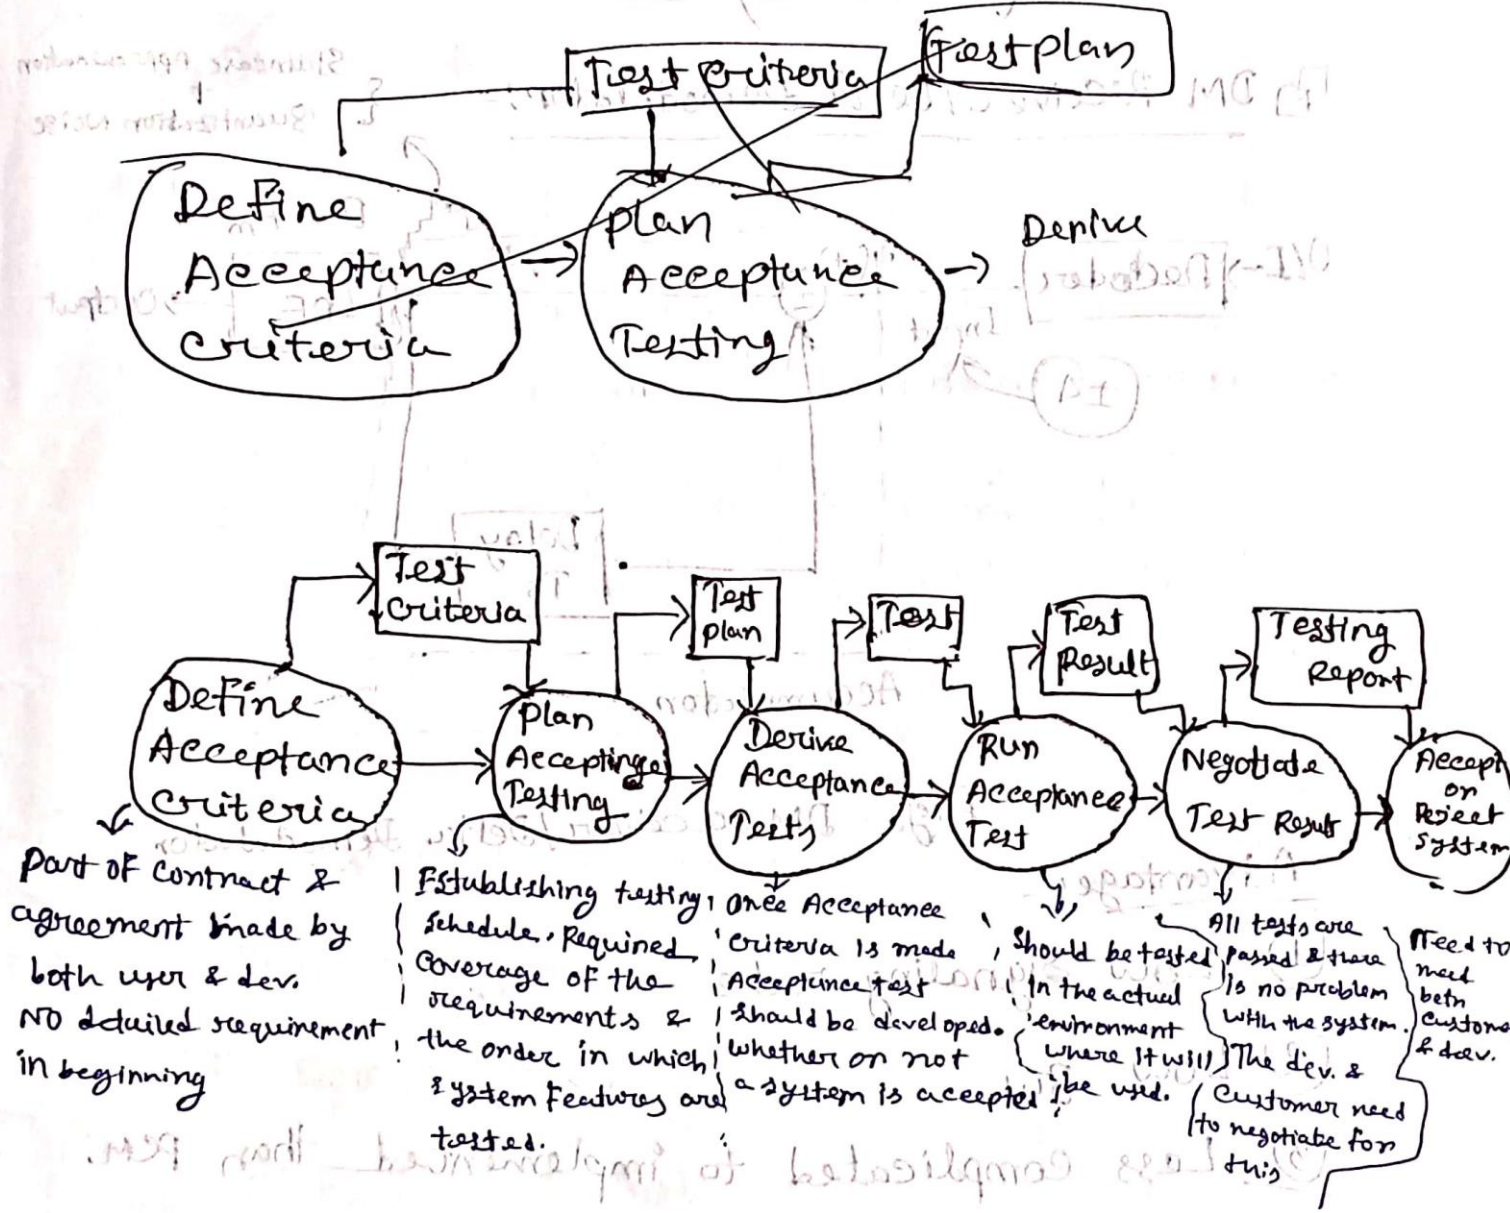 Test Criteria
Test plan
Define
Acceptance
Criteria
plan
Acceptance
Testing
Derive
Test
Criteria
Test
plan
Test
Test
Result
Testing
Report
Define
Acceptance
Criteria
plan
Testing
Derive
Acceptance
Tests
Run
Acceptance
Test
Negotiate
Test Result
Accept
or
Reject
System
part of contract &
agreement made by
both user & dev.
NO detailed requirement
in beginning
Establishing testing
schedule. Required
coverage of the
requirements &
the order in which
system Features are
tested.
once Acceptance
criteria is made
Acceptance test
should be developed.
whether or not
a system is accepted
should be tested
in the actual
environment
where it will
be used.
All tests are
passed & there
is no problem
with the system.
The dev. &
customer need
to negotiate for
this
need to
custome
& dev.